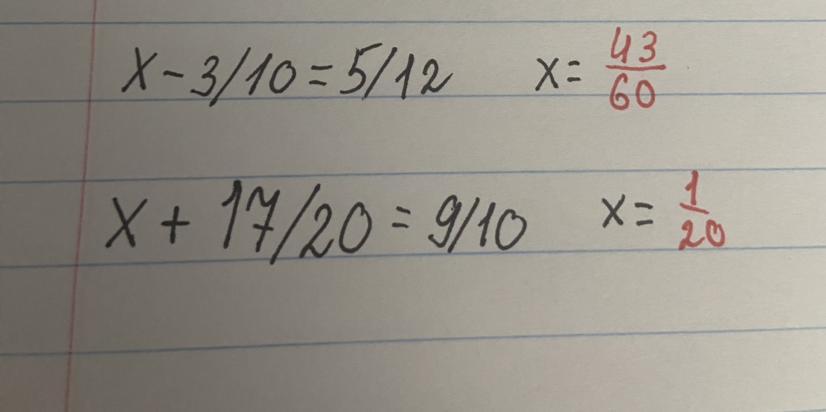 x - 3/10 = 5/12 x = 43/60
x + 17/20 = 9/10 x = 1/20